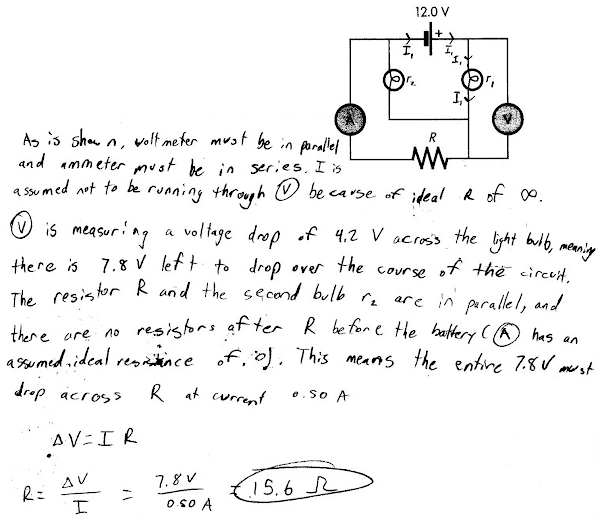 12.0 V
+
I₁ I₁
I₁
r₂ r₁
I₁
A V
R
As is shown, voltmeter must be in parallel
and ammeter must be in series. I is
assumed not to be running through Ⓥ because of ideal R of ∞.
Ⓥ is measuring a voltage drop of 4.2 V across the light bulb, meaning
there is 7.8 V left to drop over the course of the circuit.
The resistor R and the second bulb r₂ are in parallel, and
there are no resistors after R before the battery (Ⓐ has an
assumed ideal resistance of 0). This means the entire 7.8 V must
drop across R at current 0.50 A
ΔV = I R
R = ΔV / I = 7.8 V / 0.50 A = 15.6 Ω